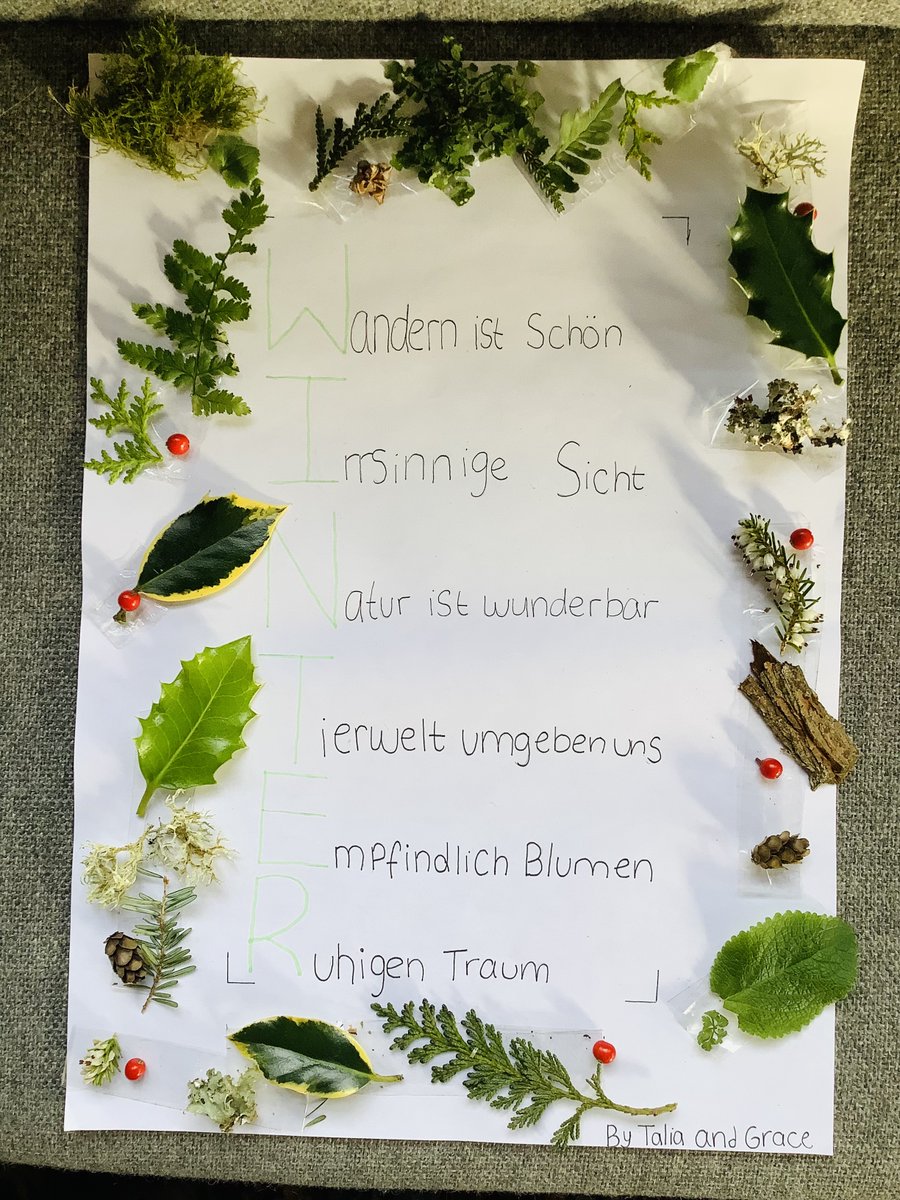 Wandern ist Schön
Irrsinnige Sicht
Natur ist wunderbar
Tierwelt umgeben uns
Empfindlich Blumen
Ruhigen Traum
By Talia and Grace